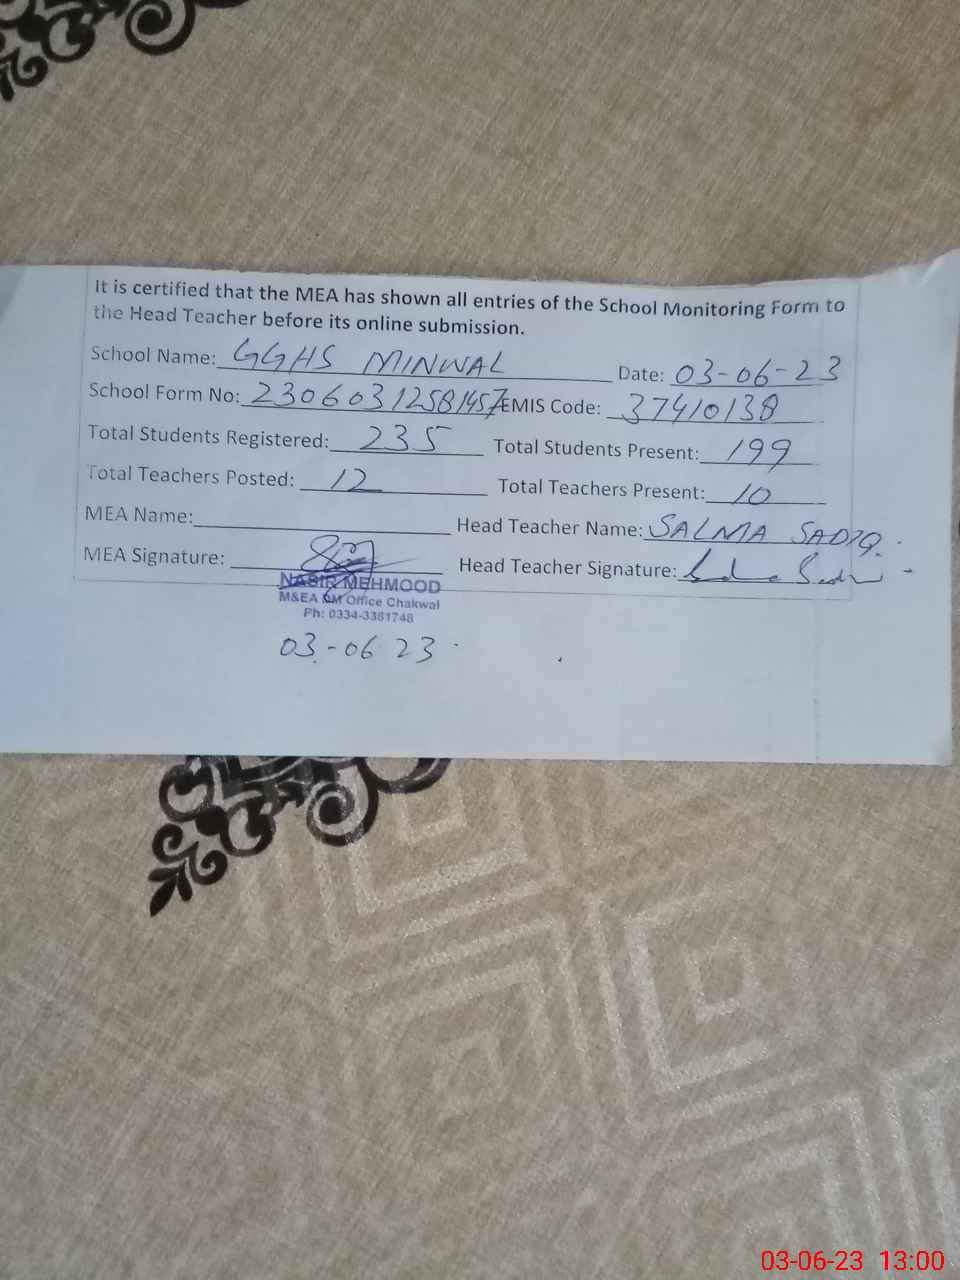 It is certified that the MEA has shown all entries of the School Monitoring Form to
the Head Teacher before its online submission.
School Name: GGHS MINWAL Date: 03-06-23
School Form No: 23060312581457 EMIS Code: 37410138
Total Students Registered: 235 Total Students Present: 199
Total Teachers Posted: 12 Total Teachers Present: 10
MEA Name: Head Teacher Name: SALMA SADIQ.
MEA Signature: Head Teacher Signature:
NASIR MEHMOOD
M&EA DM Office Chakwal
Ph: 0334-3381748
03-06 23
03-06-23 13:00